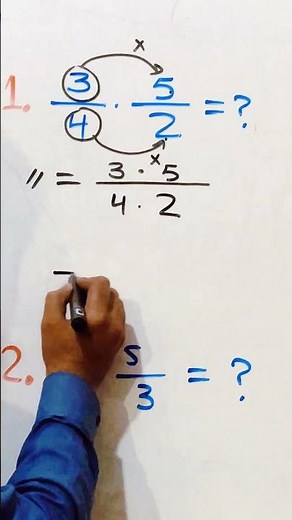 x
1. 3/4 · 5/2 = ?
x
〃 = 3 · 5 / 4 · 2
2. 5/3 = ?